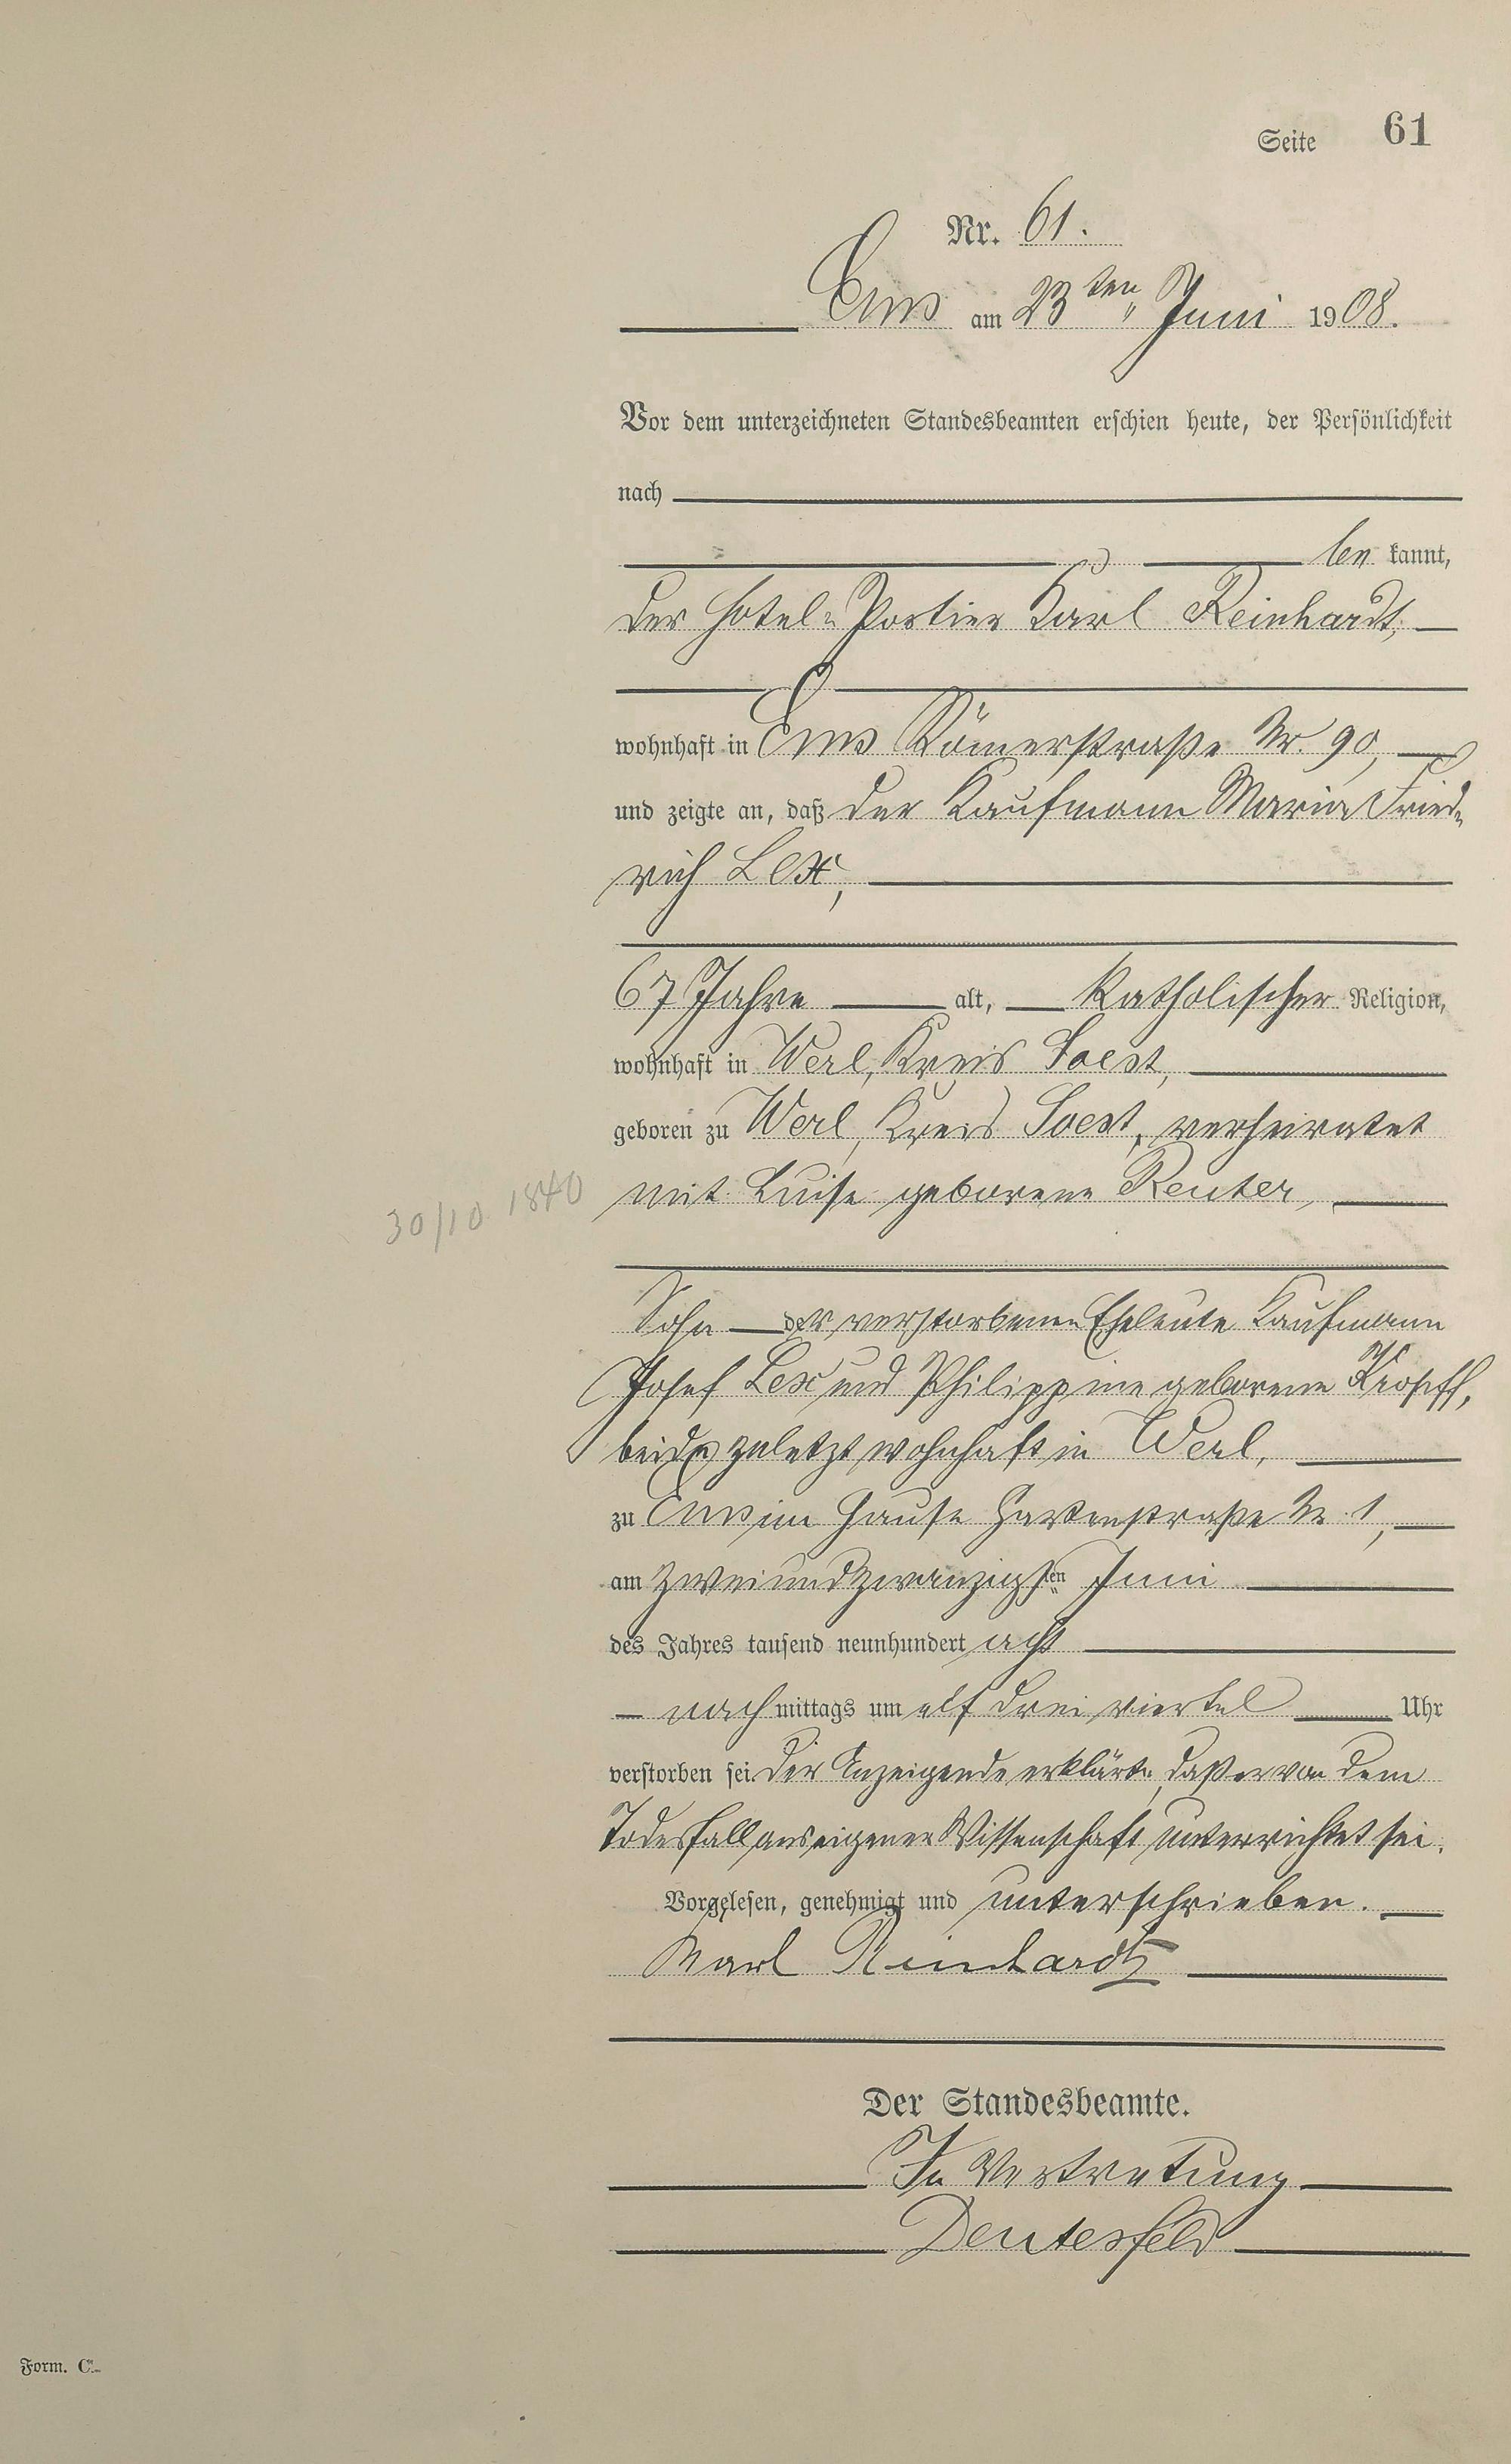 Seite 61
Nr. 61.
Ems am 23ten Juni 1908.
Vor dem unterzeichneten Standesbeamten erschien heute, der Persönlichkeit
nach
be kannt,
der Hotel-Portier Karl Reinhardt,
wohnhaft in Ems Römerstraße Nr. 90,
und zeigte an, daß der Kaufmann Maria Fried-
rich Lex,
67 Jahre alt, katholischer Religion,
wohnhaft in Werl, Kreis Soest,
geboren zu Werl, Kreis Soest, verheiratet
30/10 1840
mit Luise geborene Reuter,
Sohn der verstorbenen Eheleute Kaufmann
Josef Lex und Philippine geborene
beide zuletzt wohnhaft in Werl,
zu Ems im Hause Nr. 1,
am zweiundzwanzigsten Juni
des Jahres tausend neunhundert acht
nach mittags um elf drei viertel Uhr
verstorben sei. Der Anzeigende erklärte, daß er von dem
Todesfall aus eigener Wissenschaft unterrichtet sei.
Vorgelesen, genehmigt und unterschrieben.
Karl Reinhardt
Der Standesbeamte.
In Vertretung
Deutesfeld
Form. C.